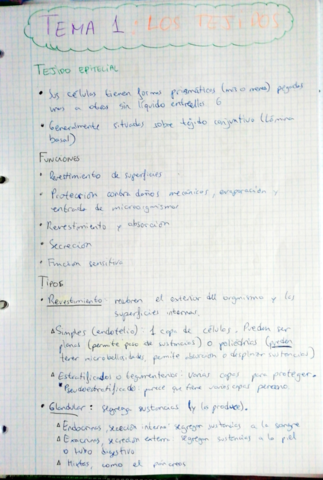 TEMA 1: LOS TEJIDOS
TEJIDO EPITELIAL
• Sus células tienen formas prismáticas (más o menos) pegadas
unas a otras sin líquido entre ellas
• Generalmente situados sobre tejido conjuntivo (Lámina
basal)
FUNCIONES
• Revestimiento de superficies
• Protección contra daños mecánicos, evaporación y
entrada de microorganismos
• Revestimiento y absorción
• Secreción
• Función sensitiva
TIPOS
• Revestimiento: recubren el exterior del organismo y las
superficies internas.
△ Simples (endotelio): 1 capa de células. Pueden ser
planas (permite paso de sustancias) o poliédricas (pueden
tener microvellosidades, permite absorción o desplazar sustancias)
△ Estratificados o tegumentarios: varias capas para proteger.
• Pseudoestratificados: parece que tiene varias capas pero no.
• Glandular: segrega sustancias (y las produce).
△ Endocrinas, secreción interna: segregan sustancias a la sangre
△ Exocrinas, secreción externa: segregan sustancias a la piel
o tubo digestivo
△ Mixtas, como el páncreas